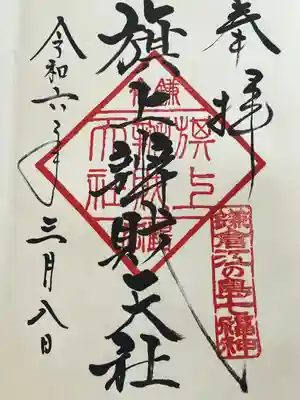 奉拝
旗上辨財天社
令和六年三月八日
鎌倉
旗上
鎌倉江の島七福神